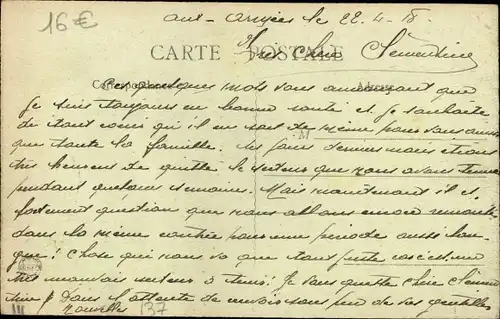 16€
aux armées le 22-4-18.
CARTE POSTALE
Très Cher Clémentine
Correspondance
Adresse
Ces quelques mots vous annonçant que
je suis toujours en bonne santé et je souhaite
de tout cœur qu'il en soit de même pour vous ainsi
que toute la famille. Ces jours derniers nous étions
très heureux de quitter le secteur que nous avons tenu
pendant quelques semaines. Mais maintenant il est
fortement question que nous allions encore remonter
dans la même contrée pour une période aussi lon-
gue! Chose qui nous va que tout juste car c'est un
très mauvais secteur à tenir! Je vous quitte Chère Clémen-
tine dans l'attente de vous de vos gentilles
nouvelles
M
137